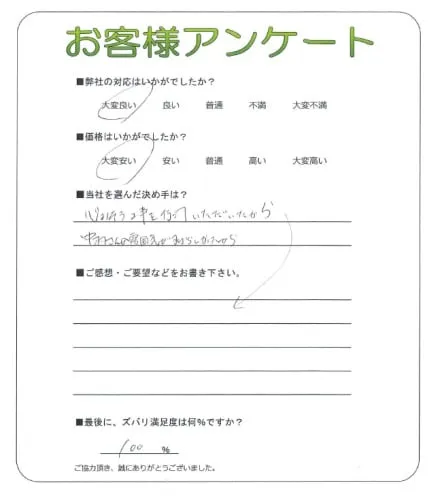 お客様アンケート
■弊社の対応はいかがでしたか?
大変良い 良い 普通 不満 大変不満
■価格はいかがでしたか?
大変安い 安い 普通 高い 大変高い
■当社を選んだ決め手は?
いただいたから
の雰囲気が
■ご感想・ご要望などをお書き下さい。
■最後に、ズバリ満足度は何%ですか?
100 %
ご協力頂き、誠にありがとうございました。